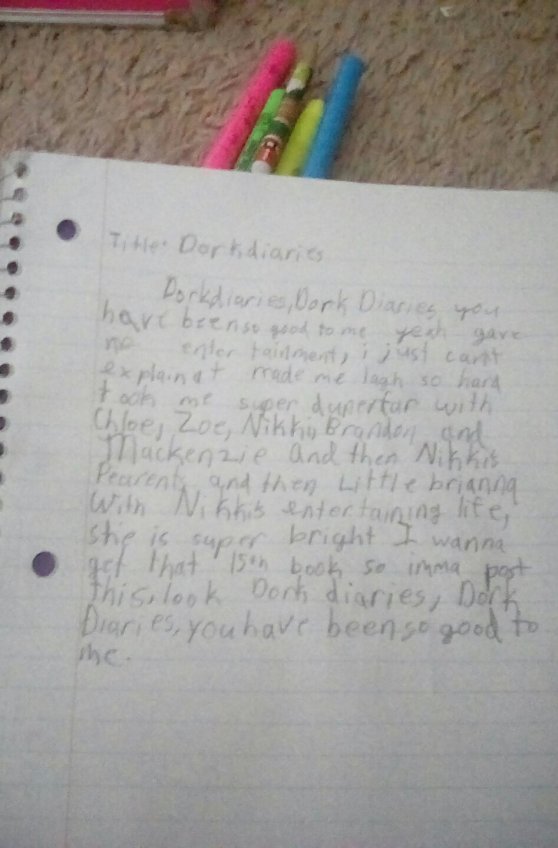 Title: Dorkdiaries
Dorkdiaries, Dork Diaries, you
have been so good to me yeah gave
me entertainment, i just can't
explain at made me lagh so hard
took me super duperfar with
Chloe, Zoe, Nikki, Brandon and
Mackenzie and then Nikkis
Pearents and then Little brianna
With Nikkis entertaining life,
she is super bright I wanna
get that 15th book so imma post
this, look Dork diaries, Dork
Diaries, you have been so good to
me.